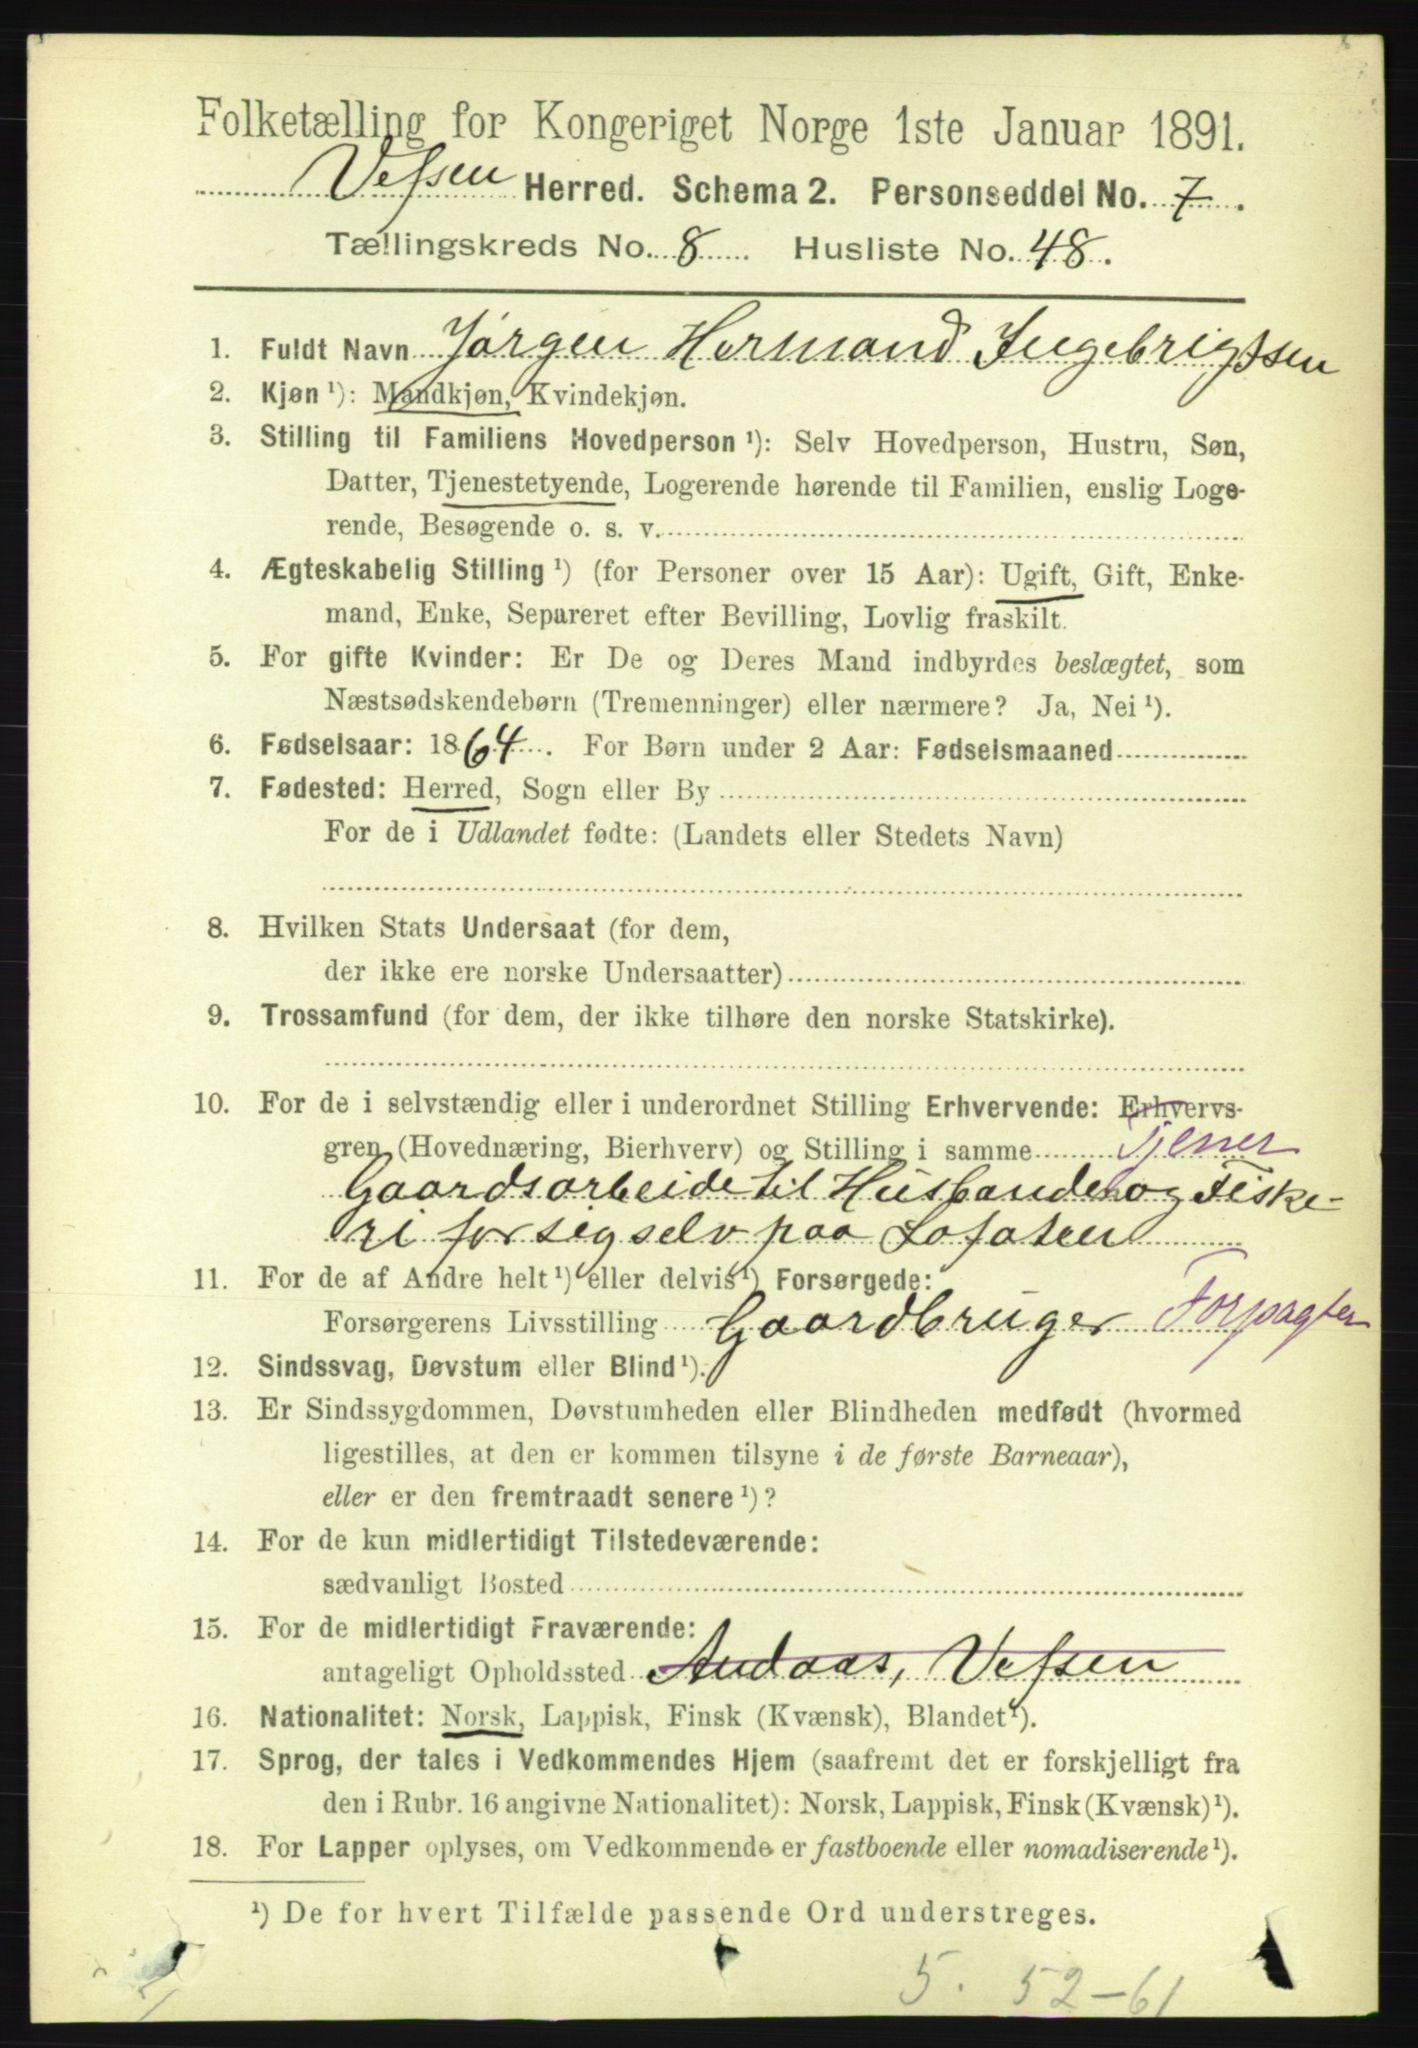 Folketælling for Kongeriget Norge 1ste Januar 1891.
Vefsen Herred. Schema 2. Personseddel No. 7.
Tællingskreds No. 8. Husliste No. 48.
1. Fuldt Navn Jørgen Hermand Ingebrigtsen
2. Kjøn ¹): Mandkjøn, Kvindekjøn.
3. Stilling til Familiens Hovedperson ¹): Selv Hovedperson, Hustru, Søn,
Datter, Tjenestetyende, Logerende hørende til Familien, enslig Loge-
rende, Besøgende o. s. v.
4. Ægteskabelig Stilling ¹) (for Personer over 15 Aar): Ugift, Gift, Enke-
mand, Enke, Separeret efter Bevilling, Lovlig fraskilt.
5. For gifte Kvinder: Er De og Deres Mand indbyrdes beslægtet, som
Næstsødskendebørn (Tremenninger) eller nærmere? Ja, Nei ¹).
6. Fødselsaar: 1864. For Børn under 2 Aar: Fødselsmaaned
7. Fødested: Herred, Sogn eller By
For de i Udlandet fødte: (Landets eller Stedets Navn)
8. Hvilken Stats Undersaat (for dem,
der ikke ere norske Undersaatter)
9. Trossamfund (for dem, der ikke tilhøre den norske Statskirke).
10. For de i selvstændig eller i underordnet Stilling Erhvervende: Erhvervs-
gren (Hovednæring, Bierhverv) og Stilling i samme Tjener
Gaardsarbeide til Husbonden og Fiske-
ri for sig selv paa Lofoten
11. For de af Andre helt ¹) eller delvis ¹) Forsørgede:
Forsørgerens Livsstilling Gaardbruger Forpagter
12. Sindssvag, Døvstum eller Blind ¹).
13. Er Sindssygdommen, Døvstumheden eller Blindheden medfødt (hvormed
ligestilles, at den er kommen tilsyne i de første Barneaar),
eller er den fremtraadt senere ¹)?
14. For de kun midlertidigt Tilstedeværende:
sædvanligt Bosted
15. For de midlertidigt Fraværende:
antageligt Opholdssted Andaas, Vefsen
16. Nationalitet: Norsk, Lappisk, Finsk (Kvænsk), Blandet ¹).
17. Sprog, der tales i Vedkommendes Hjem (saafremt det er forskjelligt fra
den i Rubr. 16 angivne Nationalitet): Norsk, Lappisk, Finsk (Kvænsk) ¹).
18. For Lapper oplyses, om Vedkommende er fastboende eller nomadiserende ¹).
¹) De for hvert Tilfælde passende Ord understreges.
5. 52-61